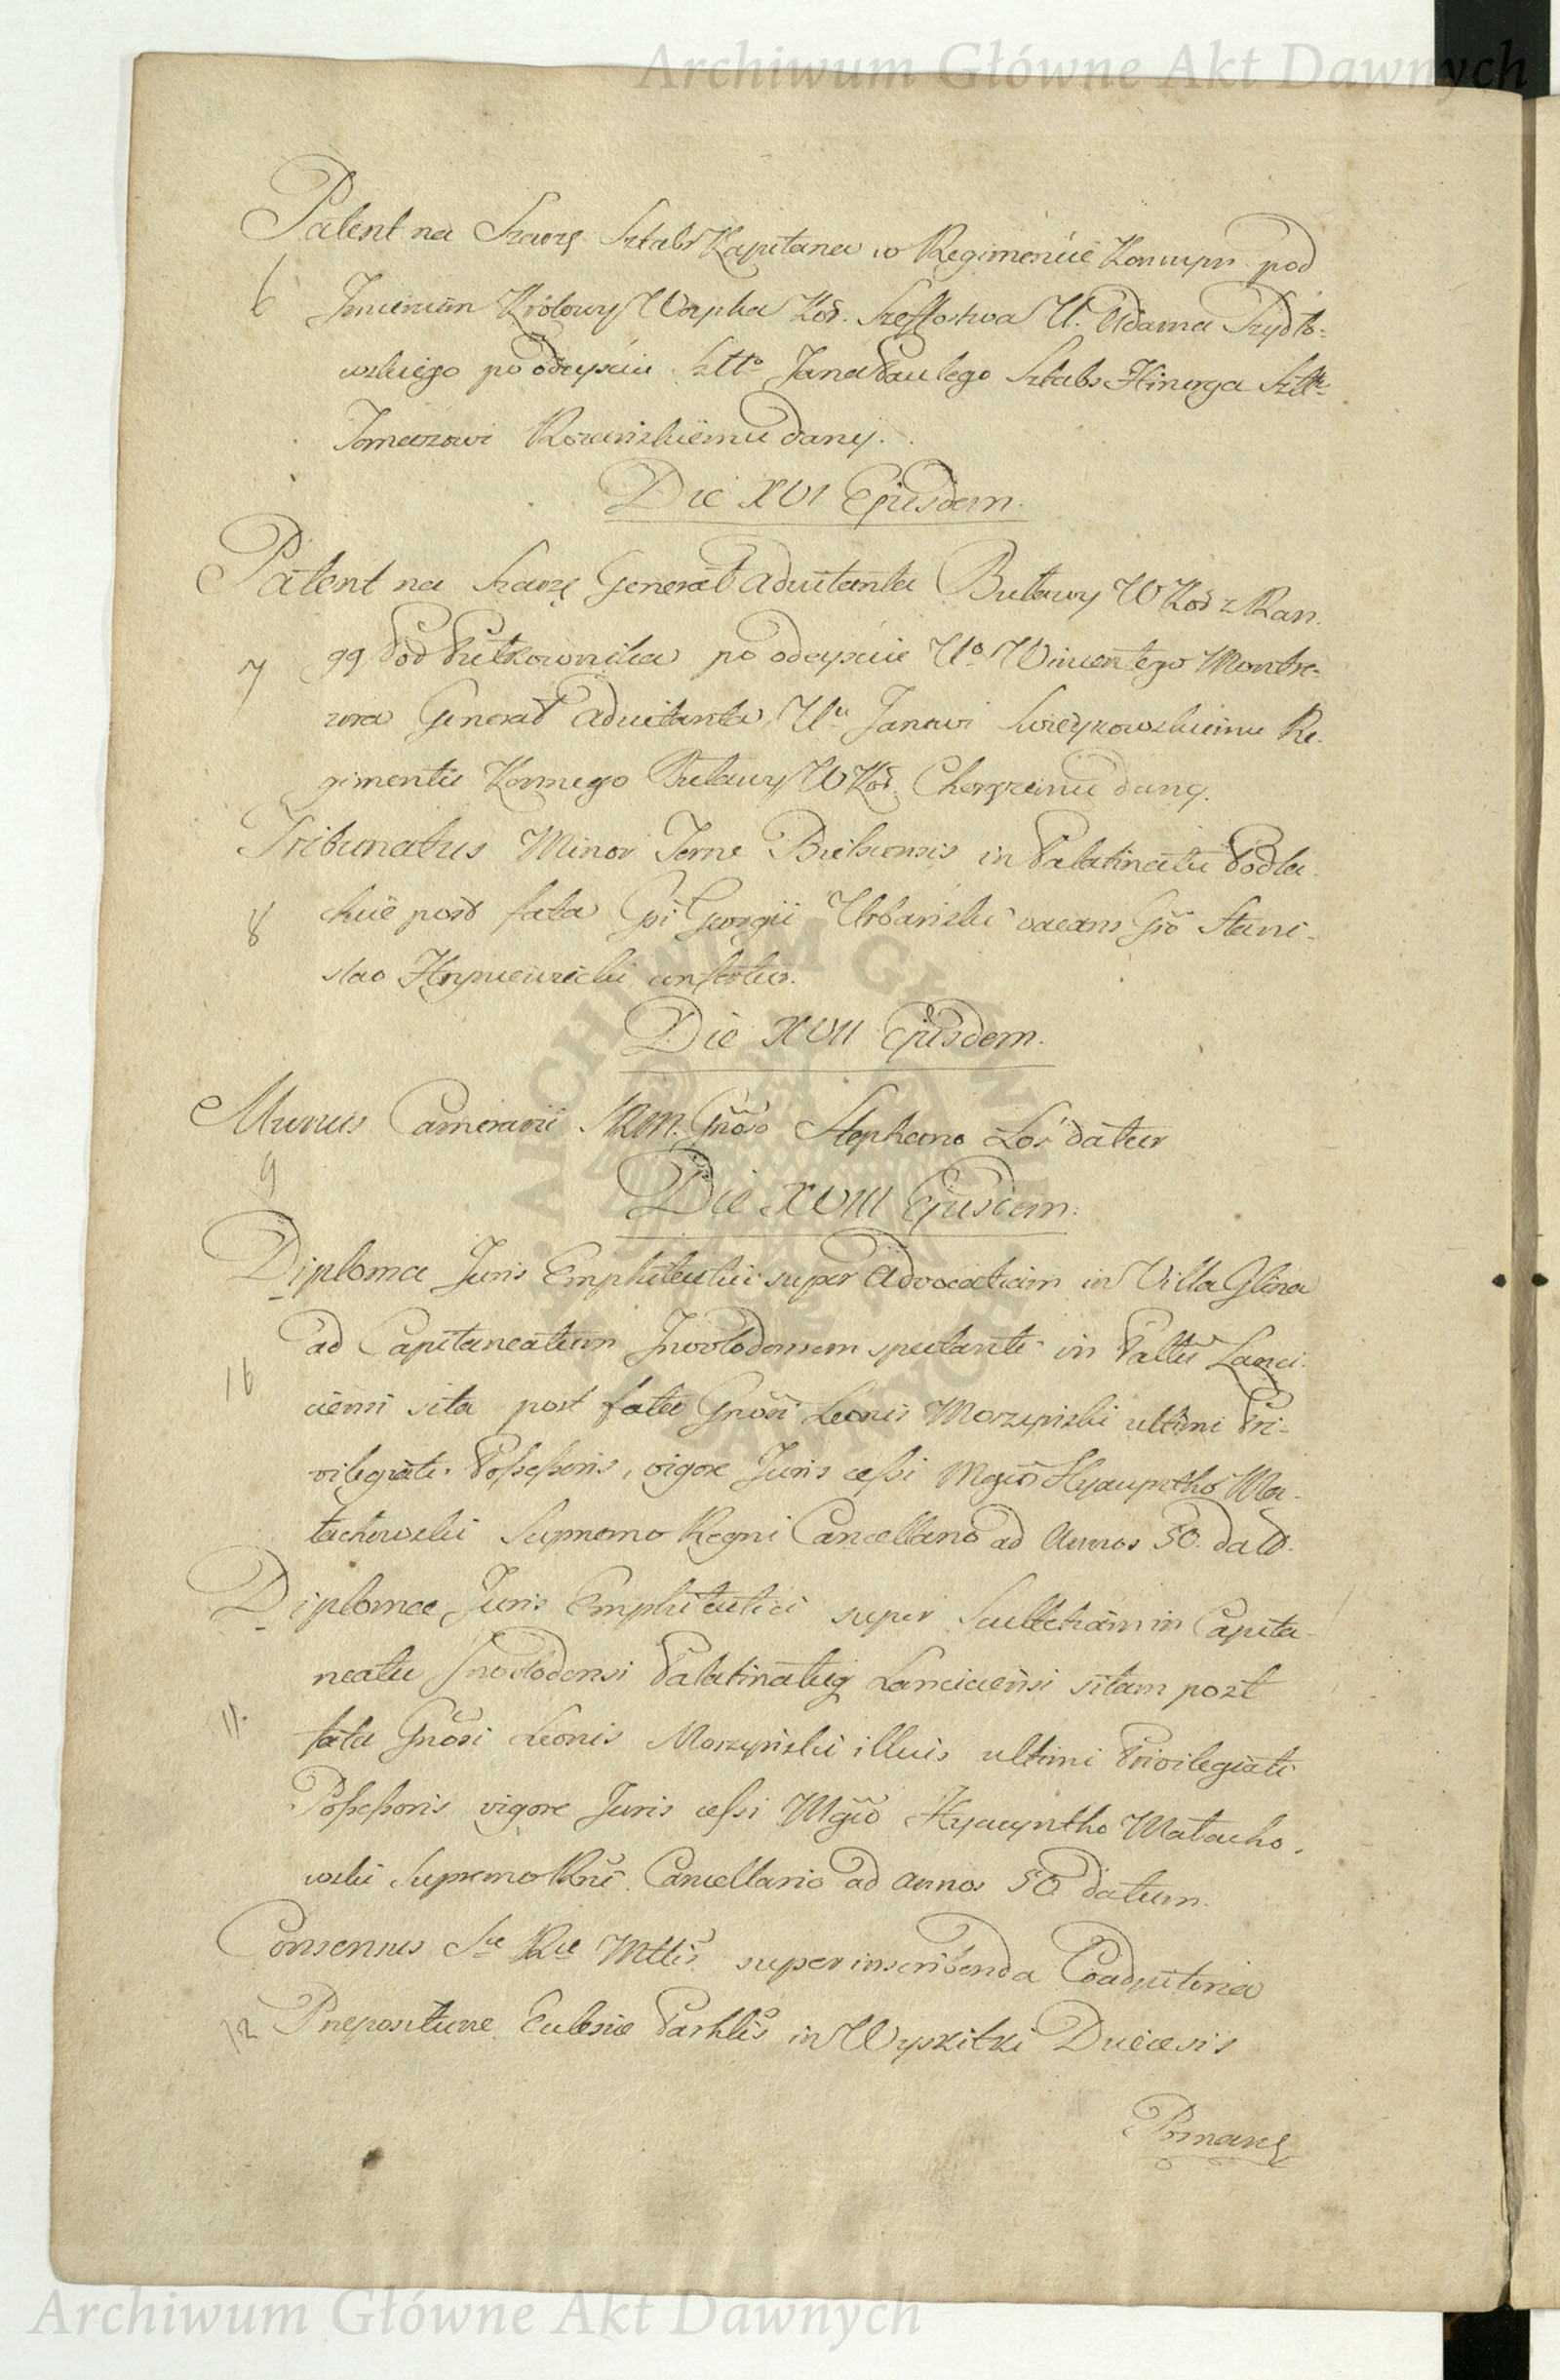 Archiwum Główne Akt Dawnych
Patent na Szarżę Sztabs Kapitana w Regimencie Konnym pod
6 Imieniem Krolowy Woyska Kor. Szeffostwa U. Adama Szydło-
wskiego po odeysciu Sztto Jana Paulego Sztabs
Tomaszowi dany.
Die XVI Ejusdem.
Patent na Szarżę Generał Adiutanta Buławy W Kor z Ran-
gą Pod Pułkownika po odeysciu Uo Wincentego Montre-
zora Generał Adiutanta, Uu Janowi Swieykowskiemu Re-
7
gimentu Konnego Buławy W Kor. Chorążemu dany.
Tribunatus Minor Terræ Bielscensis in Palatinatu Podla-
8 chiæ post fata Gsi Georgii Urbański vacans Gso Stani-
slao Hryniewicki confertur.
Die XVII Ejusdem.
Munus Camerarii SRM. Gnoso Stephano Łoś datur
9
Die XVIII Ejusdem.
Diploma Juris Emphiteutici super Advocatiam in Villa Glina
ad Capitaneatum Inowlodensem spectanti in Palttu Lanci-
10
ciensi sita post fata Gnosi Leonis Morzyński ultimi Pri-
vilegiati Possessoris, vigore Juris cessi Mgco Hyacyntho Ma-
łachowski Supremo Regni Cancellario ad Annos 50. dat.
Diploma Juris Emphiteutici super Scultetiam in Capita-
neatu Inovlodensi Palatinatuq Lanciciensi sitam post
11. fata Gnosi Leonis Morzyński illius ultimi Privilegiati
Possessoris vigore Juris cessi Mgco Hyacyntho Małacho-
wski Supremo Rni Cancellario ad annos 50 datum.
Consensus Sæ Ræ Mttis super inscribenda Coadjutoria
12 Præposituræ Eclesiæ Parhlis in Wyskitki Diecesis
Posnans
ARCHIWUM GŁÓWNE AKT DAWNYCH
Archiwum Główne Akt Dawnych